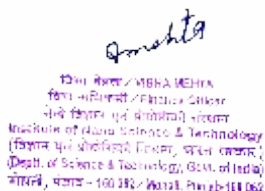 विभा मेहता / VIBHA MEHTA
वित्त अधिकारी / Finance Officer
नैनो विज्ञान एवं प्रौद्योगिकी संस्थान
Institute of Nano Science & Technology
(विज्ञान एवं प्रौद्योगिकी विभाग, भारत सरकार)
(Deptt. of Science & Technology, Govt. of India)
मोहाली, पंजाब - / Mohali, Punjab-